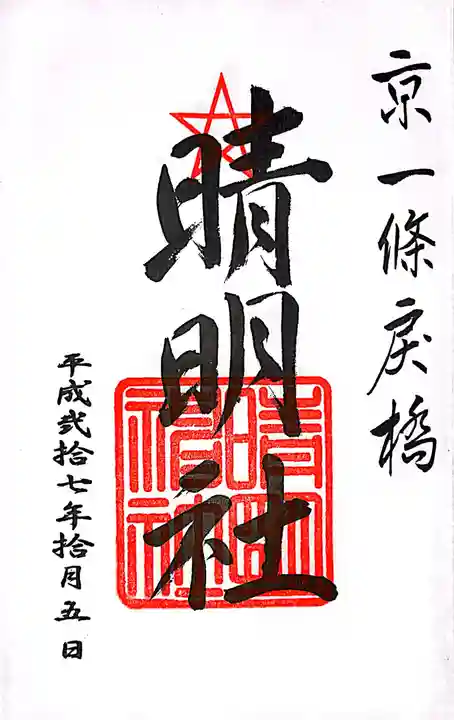 京一條戻橋
晴明社
平成弐拾七年拾月五日